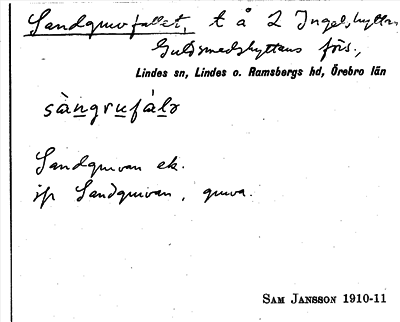 Sandgruvfallet, t å 2 Ingelshyttan,
Guldsmedshyttans förs.,
Lindes sn, Lindes o. Ramsbergs hd, Örebro län
sàngrufálə
Sandgruvan ek.
jfr Sandgruvan, gruva.
SAM JANSSON 1910-11